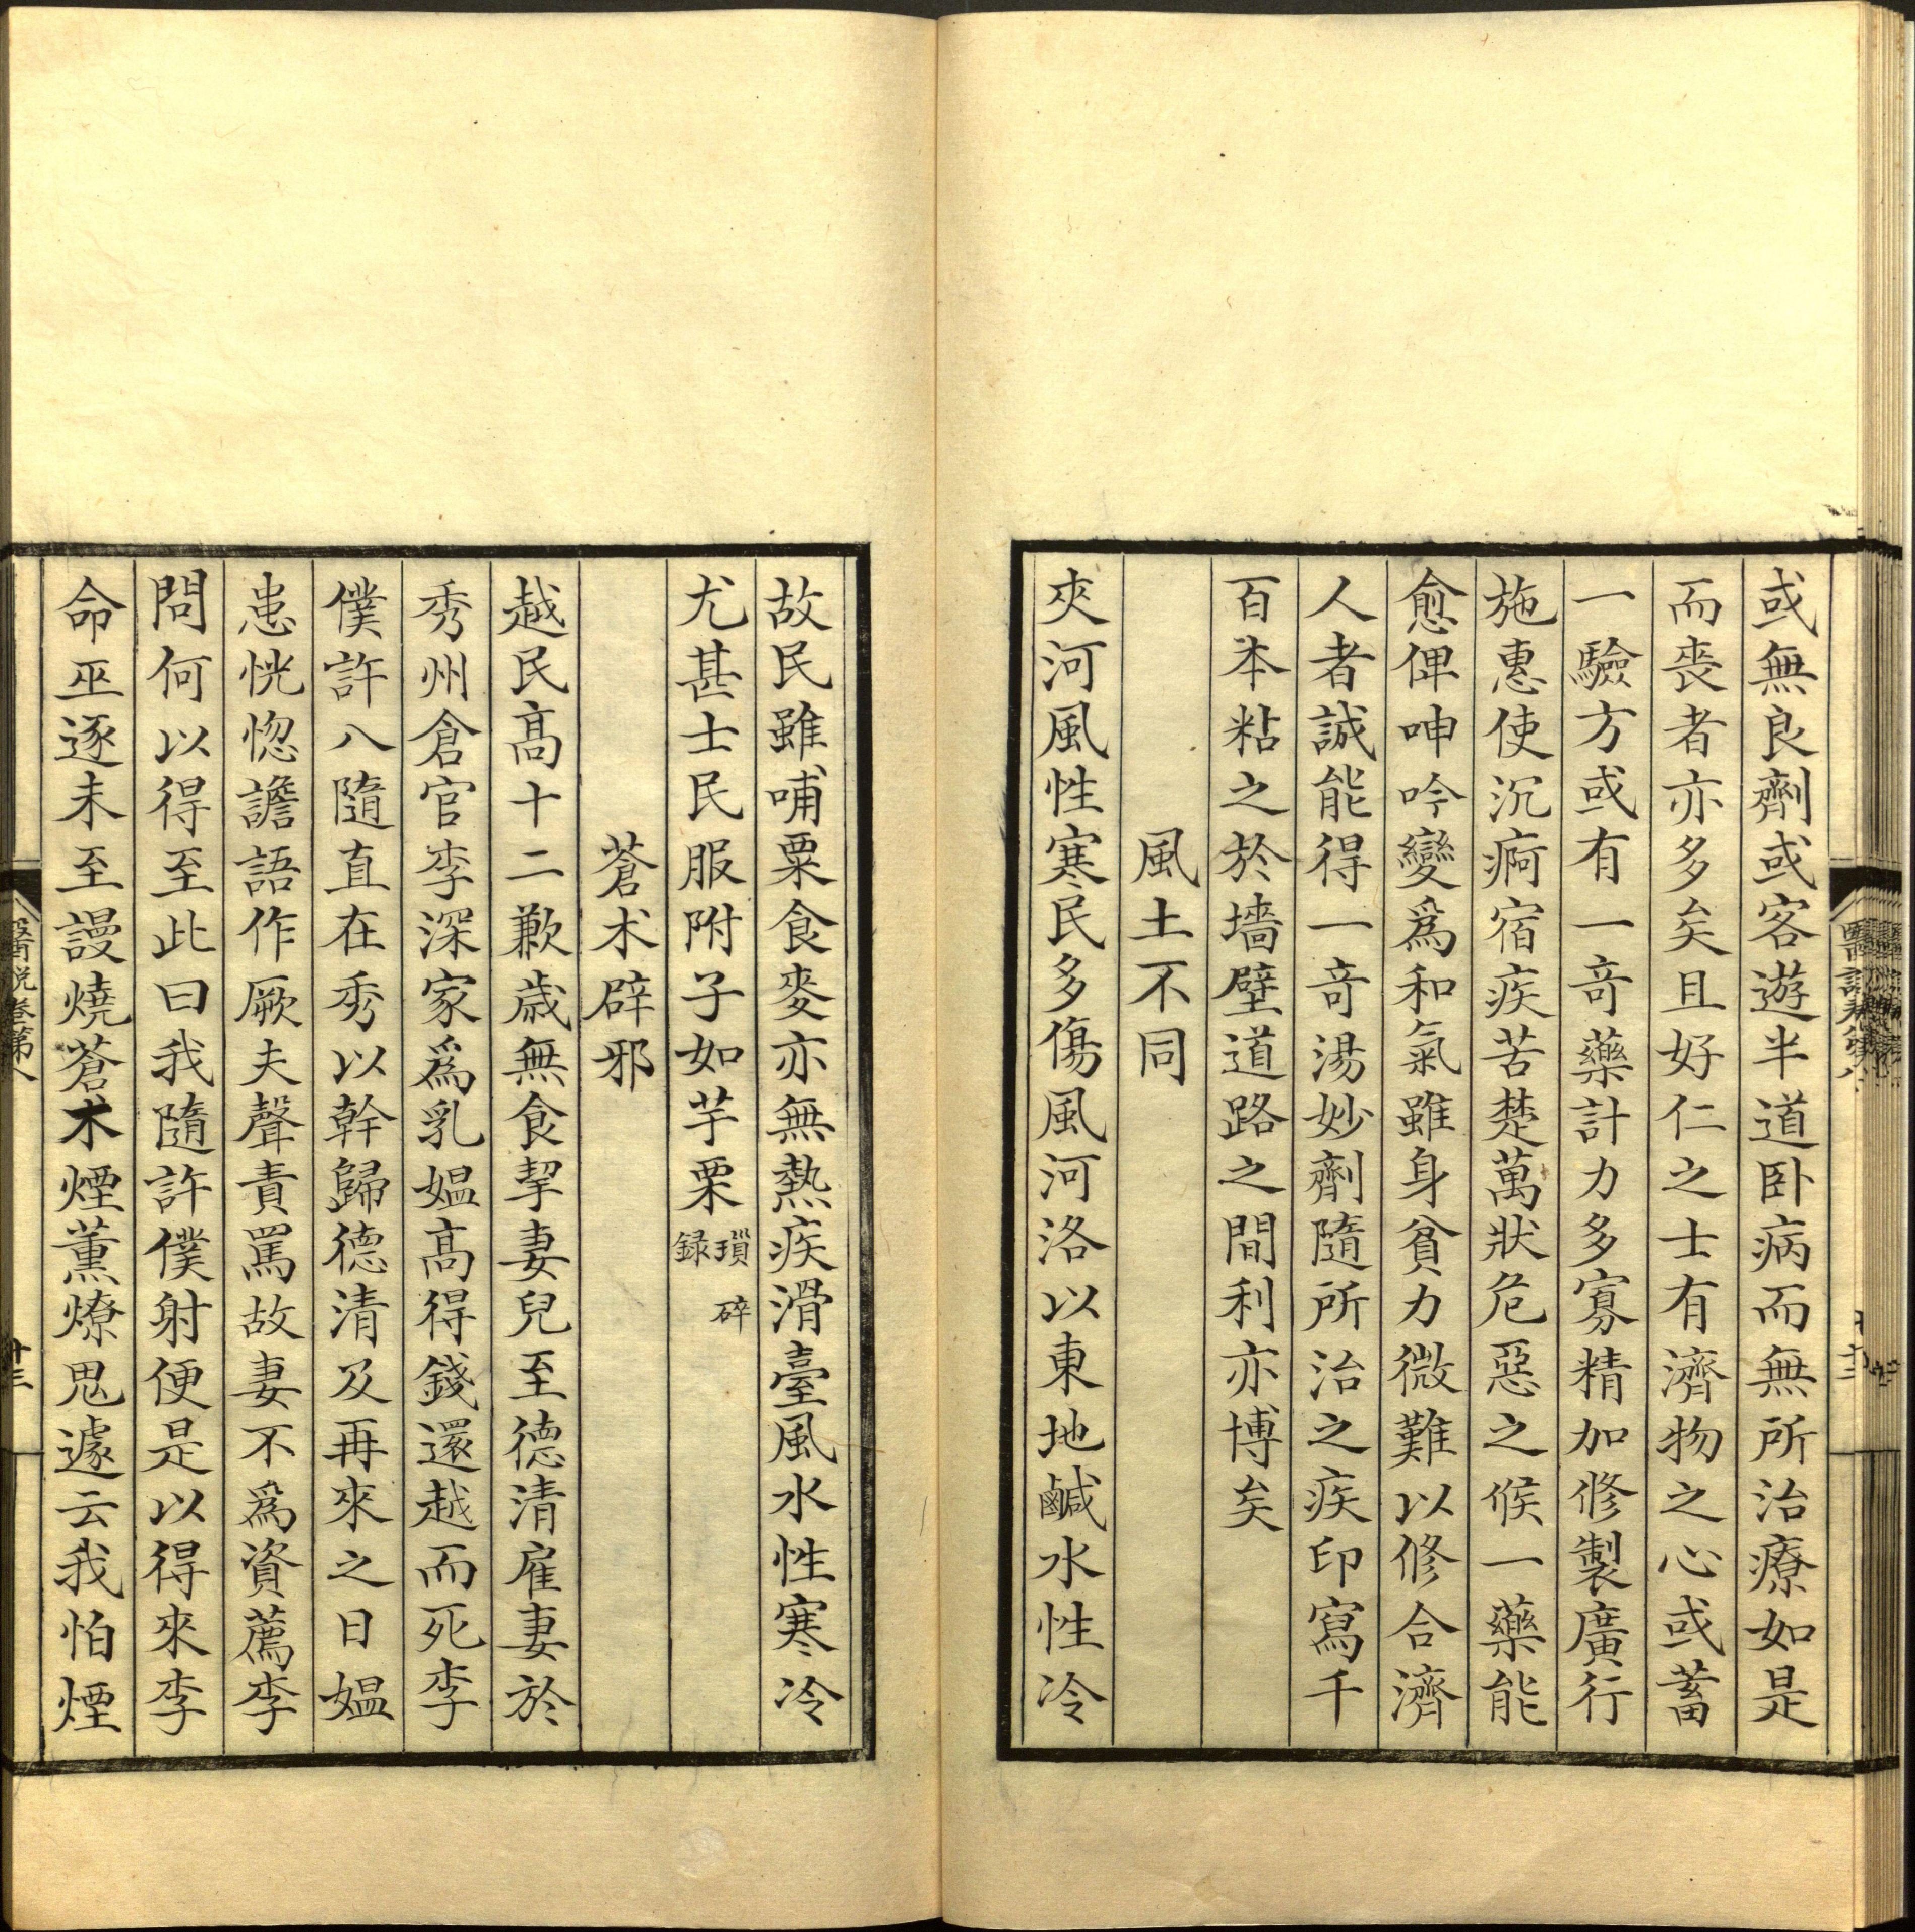 或無良劑或客遊半道卧病而無所治療如是
而喪者亦多矣且好仁之士有濟物之心或蓄
一驗方或有一竒藥計力多寡精加修製廣行
施惠使沉痾宿疾苦楚萬狀危惡之候一藥能
愈俾呻吟變為和氣雖身貧力微難以修合濟
人者誠能得一竒湯妙劑隨所治之疾印寫千
百本粘之於墻壁道路之間利亦博矣
風土不同
夾河風性寒民多傷風河洛以東地鹹水性冷
故民雖哺粟食麥亦無熱疾滑臺風水性寒冷
尤甚士民服附子如芋栗瑣碎録
蒼术辟邪
越民高十二歉歲無食挈妻兒至德清雇妻於
秀州倉官李深家爲乳媪高得錢還越而死李
僕許八隨直在秀以幹歸德清及再來之日媪
患恍惚譫語作厥夫聲責罵故妻不爲資薦李
問何以得至此曰我隨許僕射便是以得來李
命巫逐未至謾燒蒼木煙薰燎鬼遽云我怕煙
醫說卷第八
十三